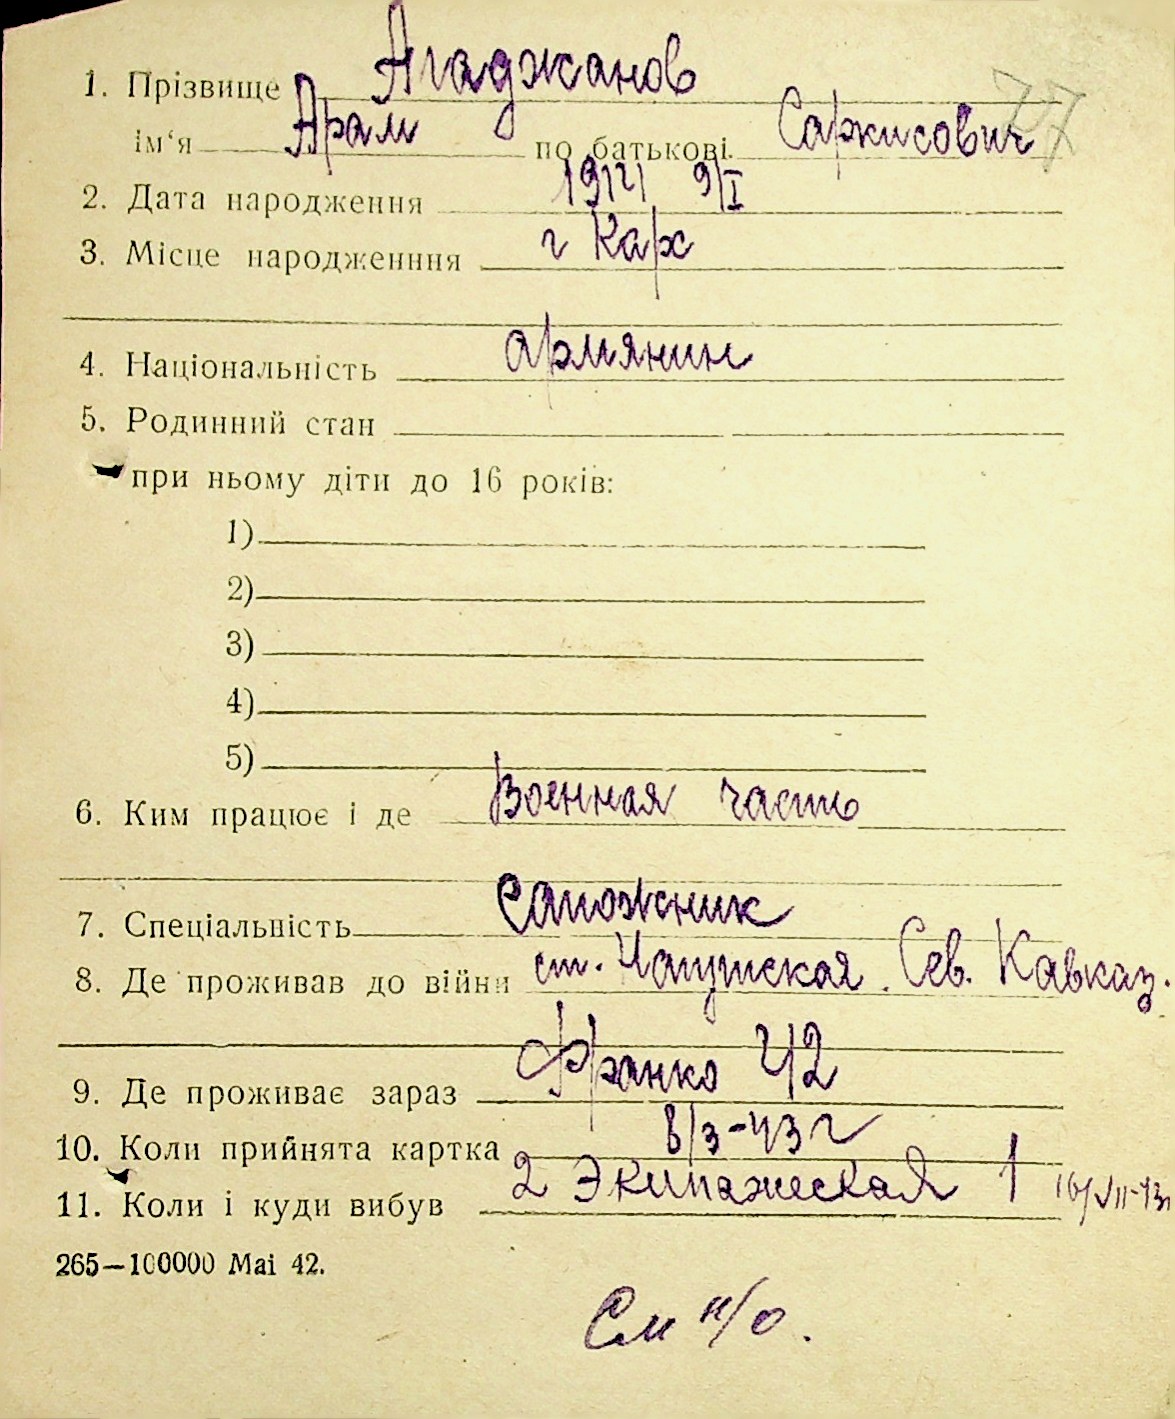 77
1. Прізвище Агаджанов
ім‘я Арам по батькові Саркисович
2. Дата народження 1921 9/I
3. Місце народженння г Карс
4. Національність армянин
5. Родинний стан
при ньому діти до 16 років:
1)
2)
3)
4)
5)
6. Ким працює і де Военная часть
7. Спеціальність Сапожник
8. Де проживав до війни ст. Сев. Кавказ.
9. Де проживає зараз Франко 42
10. Коли прийнята картка 8/3-43 г
11. Коли і куди вибув 2 Экипажеская 1 16/VII-43
265—100000 Mai 42.
См н/о.